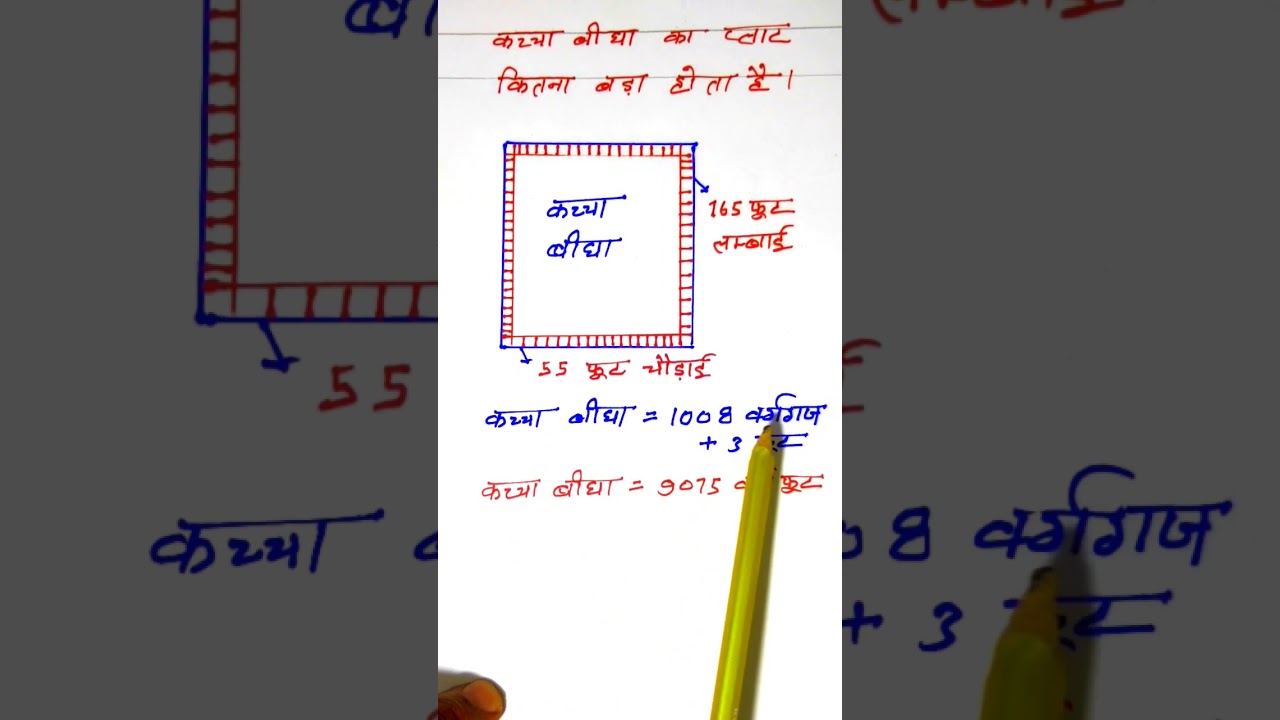 कच्चा बीघा का प्लाट
कितना बड़ा होता है।
कच्चा
बीघा
165 फूट
लम्बाई
55 फूट चौड़ाई
कच्चा बीघा = 1008 वर्गगज
+ 3
कच्चा बीघा = 9075 फूट